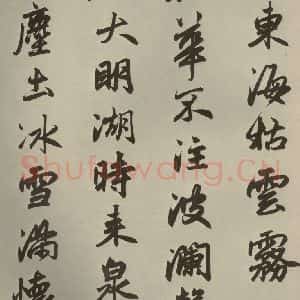 東海枯雲霧
華不注波瀾
大明湖時来泉
塵出冰雪滿懷
Shufawang.cn